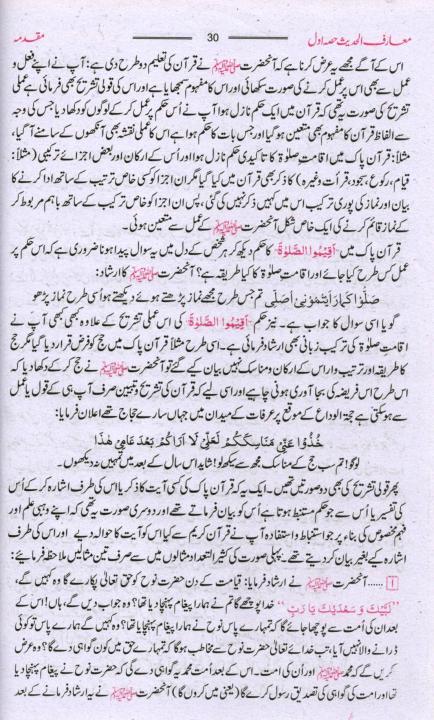 معارف الحدیث حصہ اول
30
مقدمہ
اس کے آگے مجھے یہ عرض کرنا ہے کہ آنحضرت ﷺ نے قرآن کی تعلیم دو طرح دی ہے: آپ نے اپنے فعل و
عمل سے بھی اس پر عمل کرنے کی صورت سکھائی اور اس کا مفہوم سمجھایا ہے اور اس کی قولی تشریح بھی فرمائی ہے عملی
تشریح کی صورت یہ تھی کہ قرآن میں ایک حکم نازل ہوا آپ نے اُس حکم پر عمل کر کے لوگوں کو دکھا دیا جس کی وجہ
سے الفاظ قرآن کا مفہوم بھی متعین ہو گیا اور جس بات کا حکم ہوا ہے اس کا عملی نقشہ بھی آنکھوں کے سامنے آ گیا،
مثلاً: قرآن پاک میں اقامتِ صلوٰۃ کا تاکیدی حکم نازل ہوا اور اُس کے ارکان اور بعض اجزائے ترکیبی (مثلاً:
قیام، رکوع، سجود، قرأت وغیرہ) کا ذکر بھی قرآن میں کیا گیا مگر ان اجزا کو کسی خاص ترتیب کے ساتھ ادا کرنے کا
بیان اور نماز کی پوری ترکیب اس میں کہیں ذکر نہیں کی گئی، پس ان اجزا کو خاص ترتیب کے ساتھ باہم مربوط کر
کے نماز قائم کرنے کی ایک خاص شکل آنحضرت ﷺ کے عمل سے متعین ہوئی۔
قرآن پاک میں "اَقِیْمُوا الصَّلٰوۃَ" کا حکم دیکھ کر ہر شخص کے دل میں یہ سوال پیدا ہونا ضروری ہے کہ اس حکم پر
عمل کس طرح کیا جائے اور اقامتِ صلوٰۃ کا کیا طریقہ ہے؟ آنحضرت ﷺ کا ارشاد:
صَلُّوْا کَمَا رَأَیْتُمُوْنِیْ اُصَلِّی تم جس طرح مجھے نماز پڑھتے ہوئے دیکھتے ہو اُسی طرح نماز پڑھو
گویا اسی سوال کا جواب ہے۔ نیز حکم "اَقِیْمُوا الصَّلٰوۃَ" کی اس عملی تشریح کے علاوہ بھی بھی آپ نے
اقامتِ صلوٰۃ کی ترکیب زبانی بھی ارشاد فرمائی ہے۔ اسی طرح مثلاً قرآن پاک میں حج کو فرض قرار دیا گیا مگر حج
کا طریقہ اور ترتیب وار اس کے ارکان و مناسک نہیں بیان کیے گئے تو آنحضرت ﷺ نے حج کر کے دکھا دیا کہ
اس طرح اس فریضہ کی بجا آوری ہونی چاہیے اور اسی لیے کہ قرآن کی تشریح و تبیین صرف آپ ہی کے قول یا عمل
سے ہو سکتی ہے حجۃ الوداع کے موقع پر عرفات کے میدان میں جہاں سارے حجاج تھے اعلان فرمایا:
خُذُوْا عَنِّیْ مَنَاسِکَکُمْ لَعَلِّیْ لَا اَرَاکُمْ بَعْدَ عَامِیْ ھٰذَا
لوگو! تم سب حج کے مناسک مجھ سے سیکھ لو! شاید اس سال کے بعد میں تمہیں نہ دیکھوں۔
پھر قولی تشریح کی بھی دو صورتیں تھیں۔ ایک یہ کہ قرآن پاک کی کسی آیت کا ذکر یا اس کی طرف اشارہ کر کے اُس
کی تفسیر یا اُس سے جو حکم مستنبط ہوتا ہے اُس کو بیان فرماتے تھے اور دوسری صورت یہ تھی کہ اپنے وہبی علم اور
فہم مخصوص کی بناء پر جو استنباط و استفادہ آپ نے قرآن کریم سے کیا اس کو آیت کا حوالہ دیے اور اس کی طرف
اشارہ کیے بغیر بیان کر دیتے تھے۔ پہلی صورت کی کثیر التعداد مثالوں میں سے صرف تین مثالیں ملاحظہ فرمائیے:
۱ ..... آنحضرت ﷺ نے ارشاد فرمایا: قیامت کے دن حضرت نوح کو حق تعالیٰ پکارے گا وہ کہیں گے،
"لَبَّیْکَ وَ سَعْدَیْکَ یَا رَبِّ" خدا پوچھے گا تم نے ہمارا پیغام پہنچا دیا تھا؟ وہ جواب دیں گے، ہاں! اس کے
بعد ان کی اُمت سے پوچھا جائے گا کہ تمہارے پاس نوح نے ہمارا پیغام پہنچایا تھا؟ وہ کہیں گے ہمارے پاس تو کوئی
ڈرانے والا نہیں آیا، تب خدائے تعالیٰ حضرت نوح سے مخاطب ہوگا کہ تمہارے حق میں کون گواہی دے گا؟ وہ عرض
کریں گے کہ محمد ﷺ اور اُن کی اُمت۔ اس کے بعد اُمت محمدیہ گواہی دے گی کہ حضرت نوح نے پیغام پہنچا دیا
تھا اور امت کی گواہی کی تصدیق رسول کرے گا (یعنی میں کروں گا) آنحضرت ﷺ نے یہ ارشاد فرمانے کے بعد